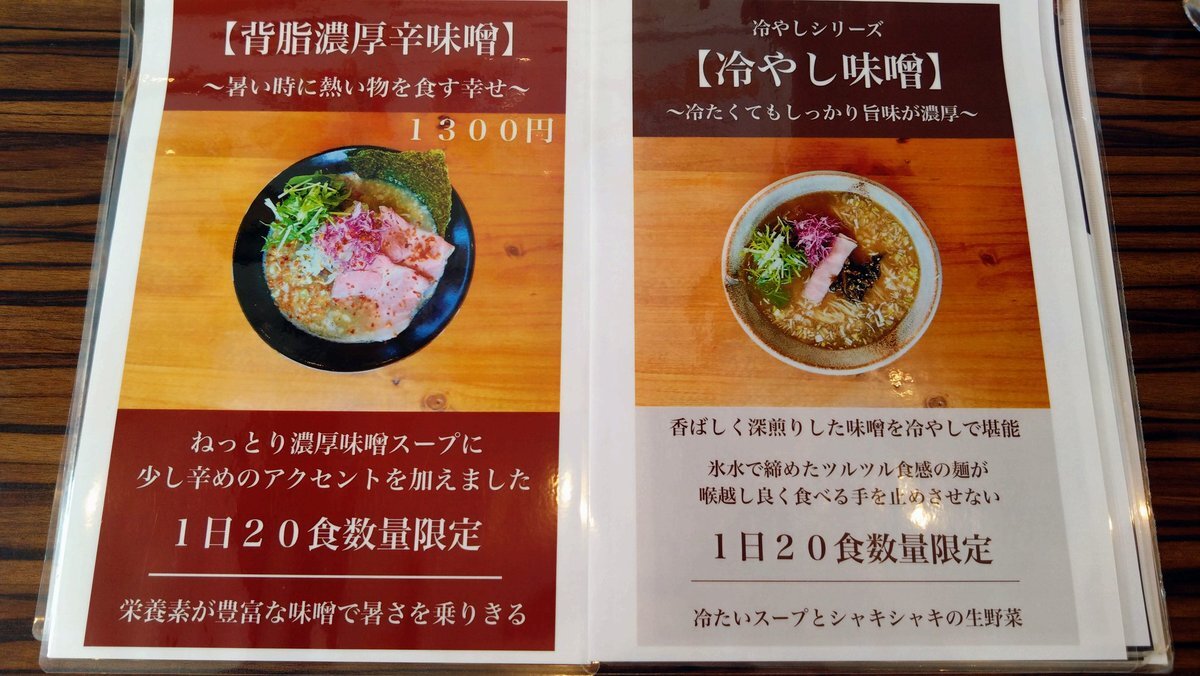 【背脂濃厚辛味噌】
～暑い時に熱い物を食す幸せ～
１３００円
ねっとり濃厚味噌スープに
少し辛めのアクセントを加えました
１日２０食数量限定
栄養素が豊富な味噌で暑さを乗りきる
冷やしシリーズ
【冷やし味噌】
～冷たくてもしっかり旨味が濃厚～
香ばしく深煎りした味噌を冷やしで堪能
氷水で締めたツルツル食感の麺が
喉越し良く食べる手を止めさせない
１日２０食数量限定
冷たいスープとシャキシャキの生野菜